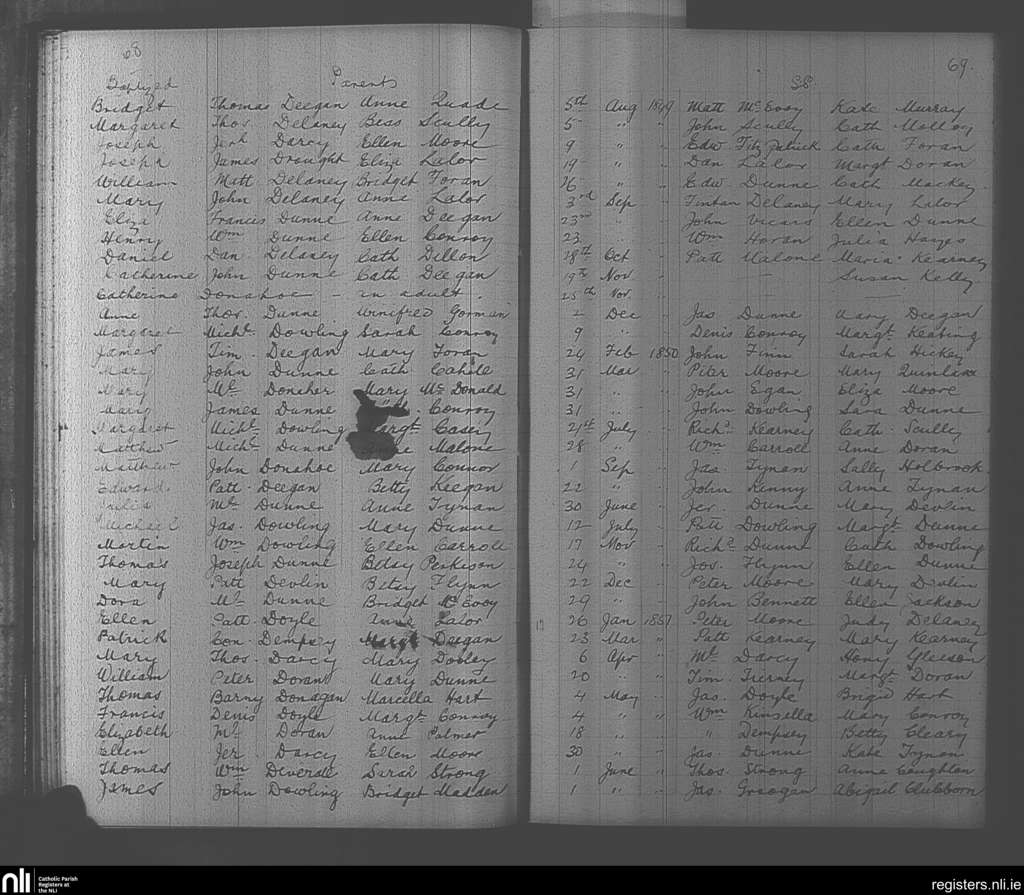 68
69.
Baptized Parents SS
Bridget Thomas Deegan Anne Quade 5th Aug 1849 Matt McEvoy Kate Murray
Margaret Thos. Delaney Bess Scully 5 " " John Scully Cath Molloy
Joseph Jerh Darcy Ellen Moore 9 " " Edw Fitzpatrick Cath Foran
Joseph James Drought Eliza Lalor 19 " " Dan Lalor Margt Doran
William Matt Delaney Bridget Foran 26 " " Edw Dunne Cath Mackey
Mary John Delaney Anne Lalor 3rd Sep " Fintan Delaney Mary Lalor
Eliza Francis Dunne Anne Deegan 23rd " " John Vicars Ellen Dunne
Henry Wm Dunne Ellen Conroy 23 " " Wm Horan Julia Hayes
Daniel Dan Delaney Cath Dillon 28th Oct " Patt Malone Maria Kearney
Catherine John Dunne Cath Deegan 19th Nov " — Susan Kelly
Catherine Donahoe – an adult. 25th Nov. " —
Anne Thos. Dunne Winifred Gorman 2 Dec " Jas Dunne Mary Deegan
Margaret Michl. Dowling Sarah Conroy 9 " " Denis Conroy Margt. Keating
James Tim. Deegan Mary Foran 24 Feb 1850 John Finn Sarah Hickey
Mary John Dunne Cath Cahill 31 Mar " Peter Moore Mary Quinlan
Mary Ml. Donaher Mary McDonald 31 " " John Egan Eliza Moore
Mary James Dunne Conroy 31 " " John Dowling Sara Dunne
Margaret Michl. Dowling Margt. Casey 21st July " Richd. Kearney Cath. Scully
Matthew Michl. Dunne Malone 28 " " Wm Carroll Anne Doran
Matthew John Donahoe Mary Connor 1 Sep " Jas. Tynan Sally Holbrook
Edward Patt. Deegan Betty Keegan 22 " " John Kenny Anne Tynan
Julia Ml. Dunne Anne Tynan 30 June " Jer. Dunne Mary Devlin
Michael Jas. Dowling Mary Dunne 12 July " Patt Dowling Margt. Dunne
Martin Wm Dowling Ellen Carroll 17 Nov " Richd. Dunne Cath Dowling
Thomas Joseph Dunne Betsy Perkison 24 " " Jos. Flynn Ellen Dunne
Mary Patt Devlin Betsy Flynn 22 Dec " Peter Moore Mary Devlin
Dora Ml. Dunne Bridget McEvoy 29 " " John Bennett Ellen Jackson
Ellen Patt. Doyle Anne Lalor 26 Jan 1851 Peter Moore Judy Delaney
Patrick Con. Dempsey Margt Deegan 23 Mar " Patt Kearney Mary Kearney
Mary Thos. Darcy Mary Dooley 6 Apr " Ml. Darcy Hony Gleeson
William Peter Doran Mary Dunne 20 " " Tim Tierney Margt. Doran
Thomas Barny Donagan Marcella Hart 4 May " Jas. Doyle Brigid Hart
Francis Denis Doyle Margt. Conroy 4 " " Wm Kinsella Mary Conroy
Elizabeth Ml. Doran Anne Palmer 18 " " " Dempsey Betty Cleary
Ellen Jer. Darcy Ellen Moore 30 " " Jas. Dunne Kate Tynan
Thomas Wm Diverall Sarah Strong 1 June " Thos. Strong Anne Coughlan
James John Dowling Bridget Madden 1 " " Jas. Abigail
nli Catholic Parish Registers at the NLI
registers.nli.ie